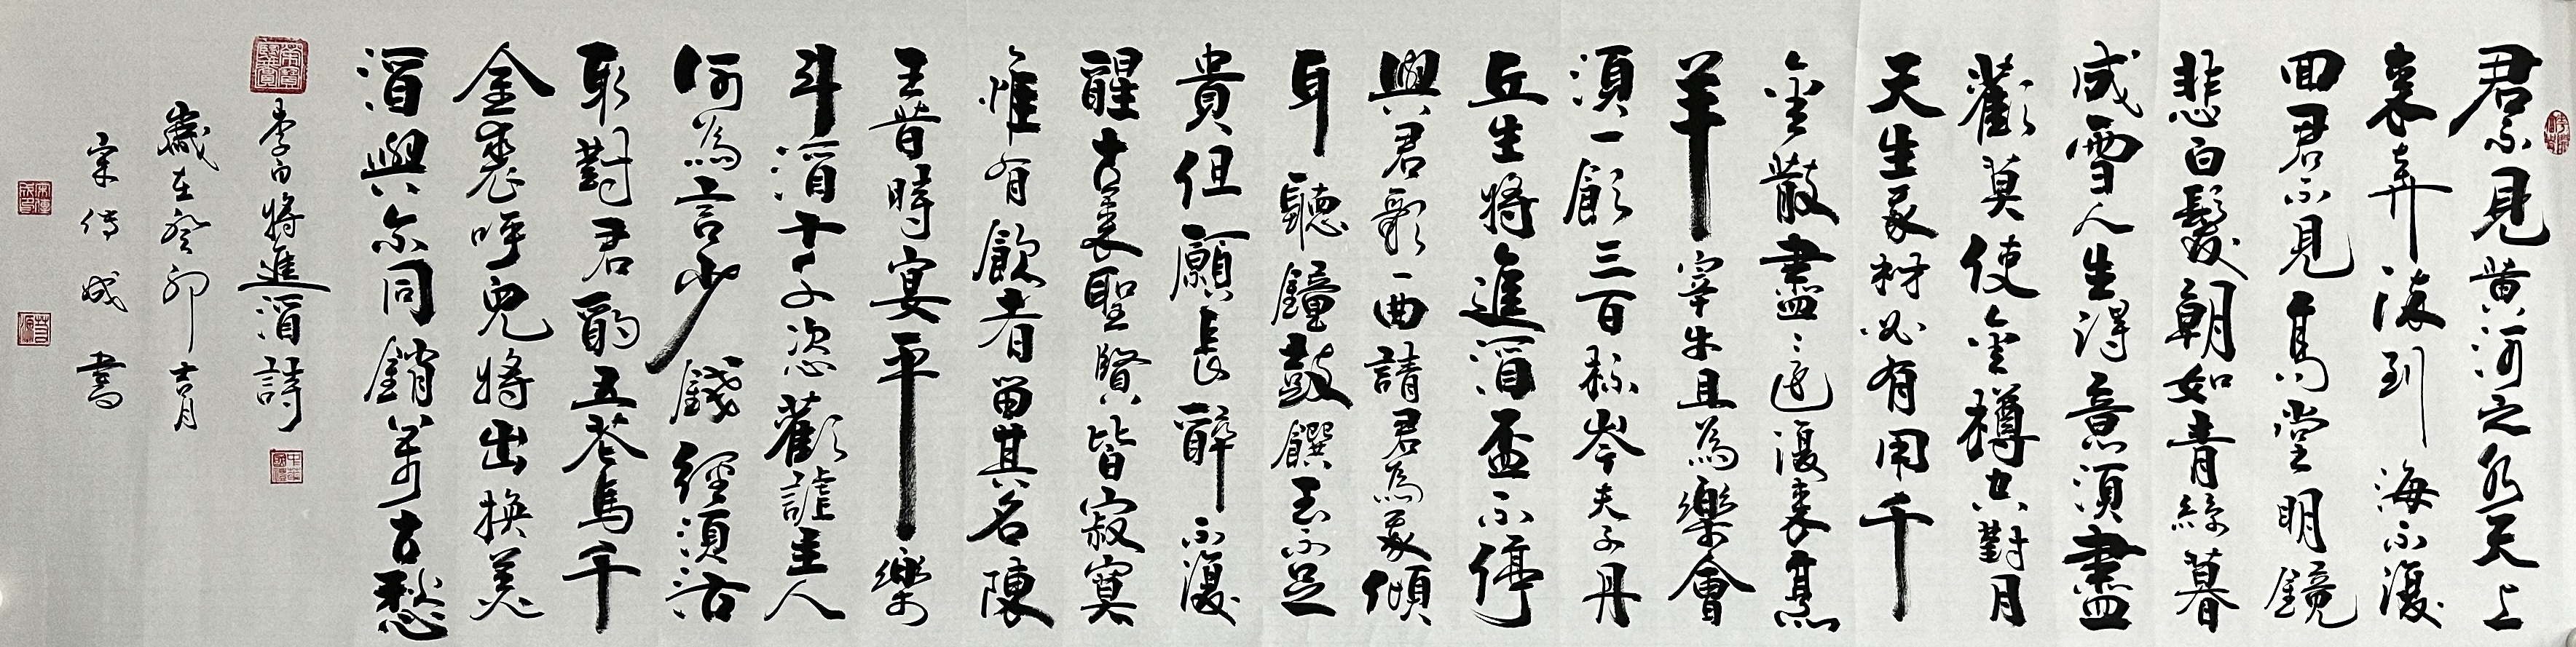 君不見黃河之水天上
來奔流到海不復
回君不見高堂明鏡
悲白髮朝如青絲暮
成雪人生得意須盡
歡莫使金樽空對月
天生我材必有用千
金散盡還復來烹
羊宰牛且為樂會
須一飲三百杯岑夫子丹
丘生將進酒盃不停
與君歌一曲請君為我傾
耳聽鐘鼓饌玉不足
貴但願長醉不復
醒古來聖賢皆寂寞
惟有飲者留其名陳
王昔時宴平樂
斗酒十千恣歡謔主人
何為言少錢徑須沽
取對君酌五花馬千
金裘呼兒將出換美
酒與尔同銷萬古愁
李白將進酒詩
歲在癸卯吉月
宋傳成書